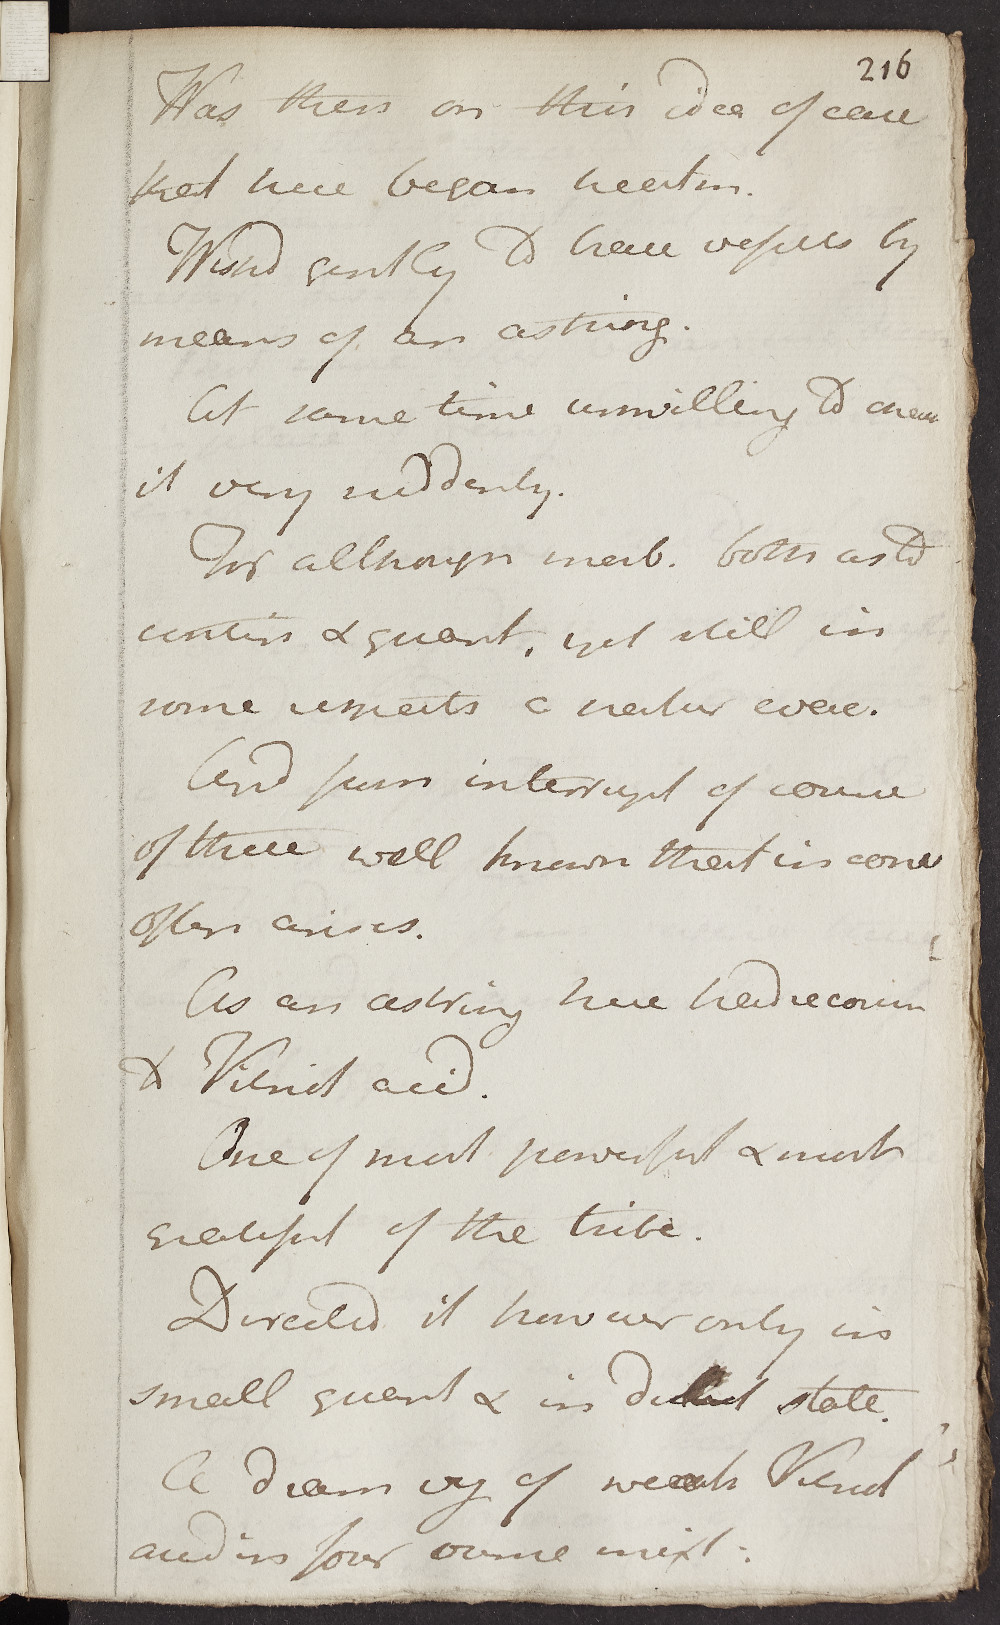 216
Was then on this idea of case
that here began treatm.
Wishd gently to brace vessels by
means of an astring.
At same time unwilling to check
it very suddenly.
For although morb. both as to
contin & quant, yet still in
some respects a natur evac.
And from interrupt of course
of these well known that in cons
often arises.
As an astring here had recours
to Vitriol acid.
One of most powerful & most
grateful of the tribe.
Directed it however only in
small quant & in dilut state.
A dram vz of weak Vitriol
acid in four ounce mixt.